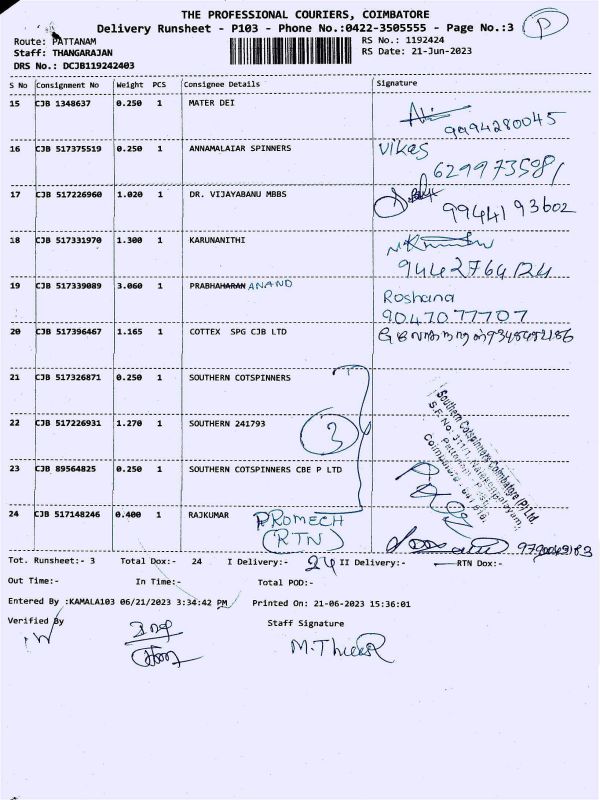 THE PROFESSIONAL COURIERS, COIMBATORE
Delivery Runsheet - P103 - Phone No.:0422-3505555 - Page No.:3
P
Route: PATTANAM
RS No.: 1192424
Staff: THANGARAJAN
RS Date: 21-Jun-2023
DRS No.: DCJB119242403
S No Consignment No Weight PCS Consignee Details Signature
15 CJB 1348637 0.250 1 MATER DEI
9994280045
16 CJB 517375519 0.250 1 ANNAMALAIAR SPINNERS Vikas
6299973581
17 CJB 517226960 1.020 1 DR. VIJAYABANU MBBS
9944193602
18 CJB 517331970 1.300 1 KARUNANITHI
9442764124
19 CJB 517339089 3.060 1 PRABHAHARAN ANAND Roshana
9047077707
20 CJB 517396467 1.165 1 COTTEX SPG CJB LTD
21 CJB 517326871 0.250 1 SOUTHERN COTSPINNERS
22 CJB 517226931 1.270 1 SOUTHERN 241793
3
23 CJB 89564825 0.250 1 SOUTHERN COTSPINNERS CBE P LTD
Southern Cotspinners Coimbatore (P) Ltd.
24 CJB 517148246 0.400 1 RAJKUMAR PROMECH
(RTN)
Tot. Runsheet:- 3 Total Dox:- 24 I Delivery:- 24 II Delivery:- RTN Dox:-
Out Time:- In Time:- Total POD:-
Entered By :KAMALA103 06/21/2023 3:34:42 PM Printed On: 21-06-2023 15:36:01
Verified By Staff Signature